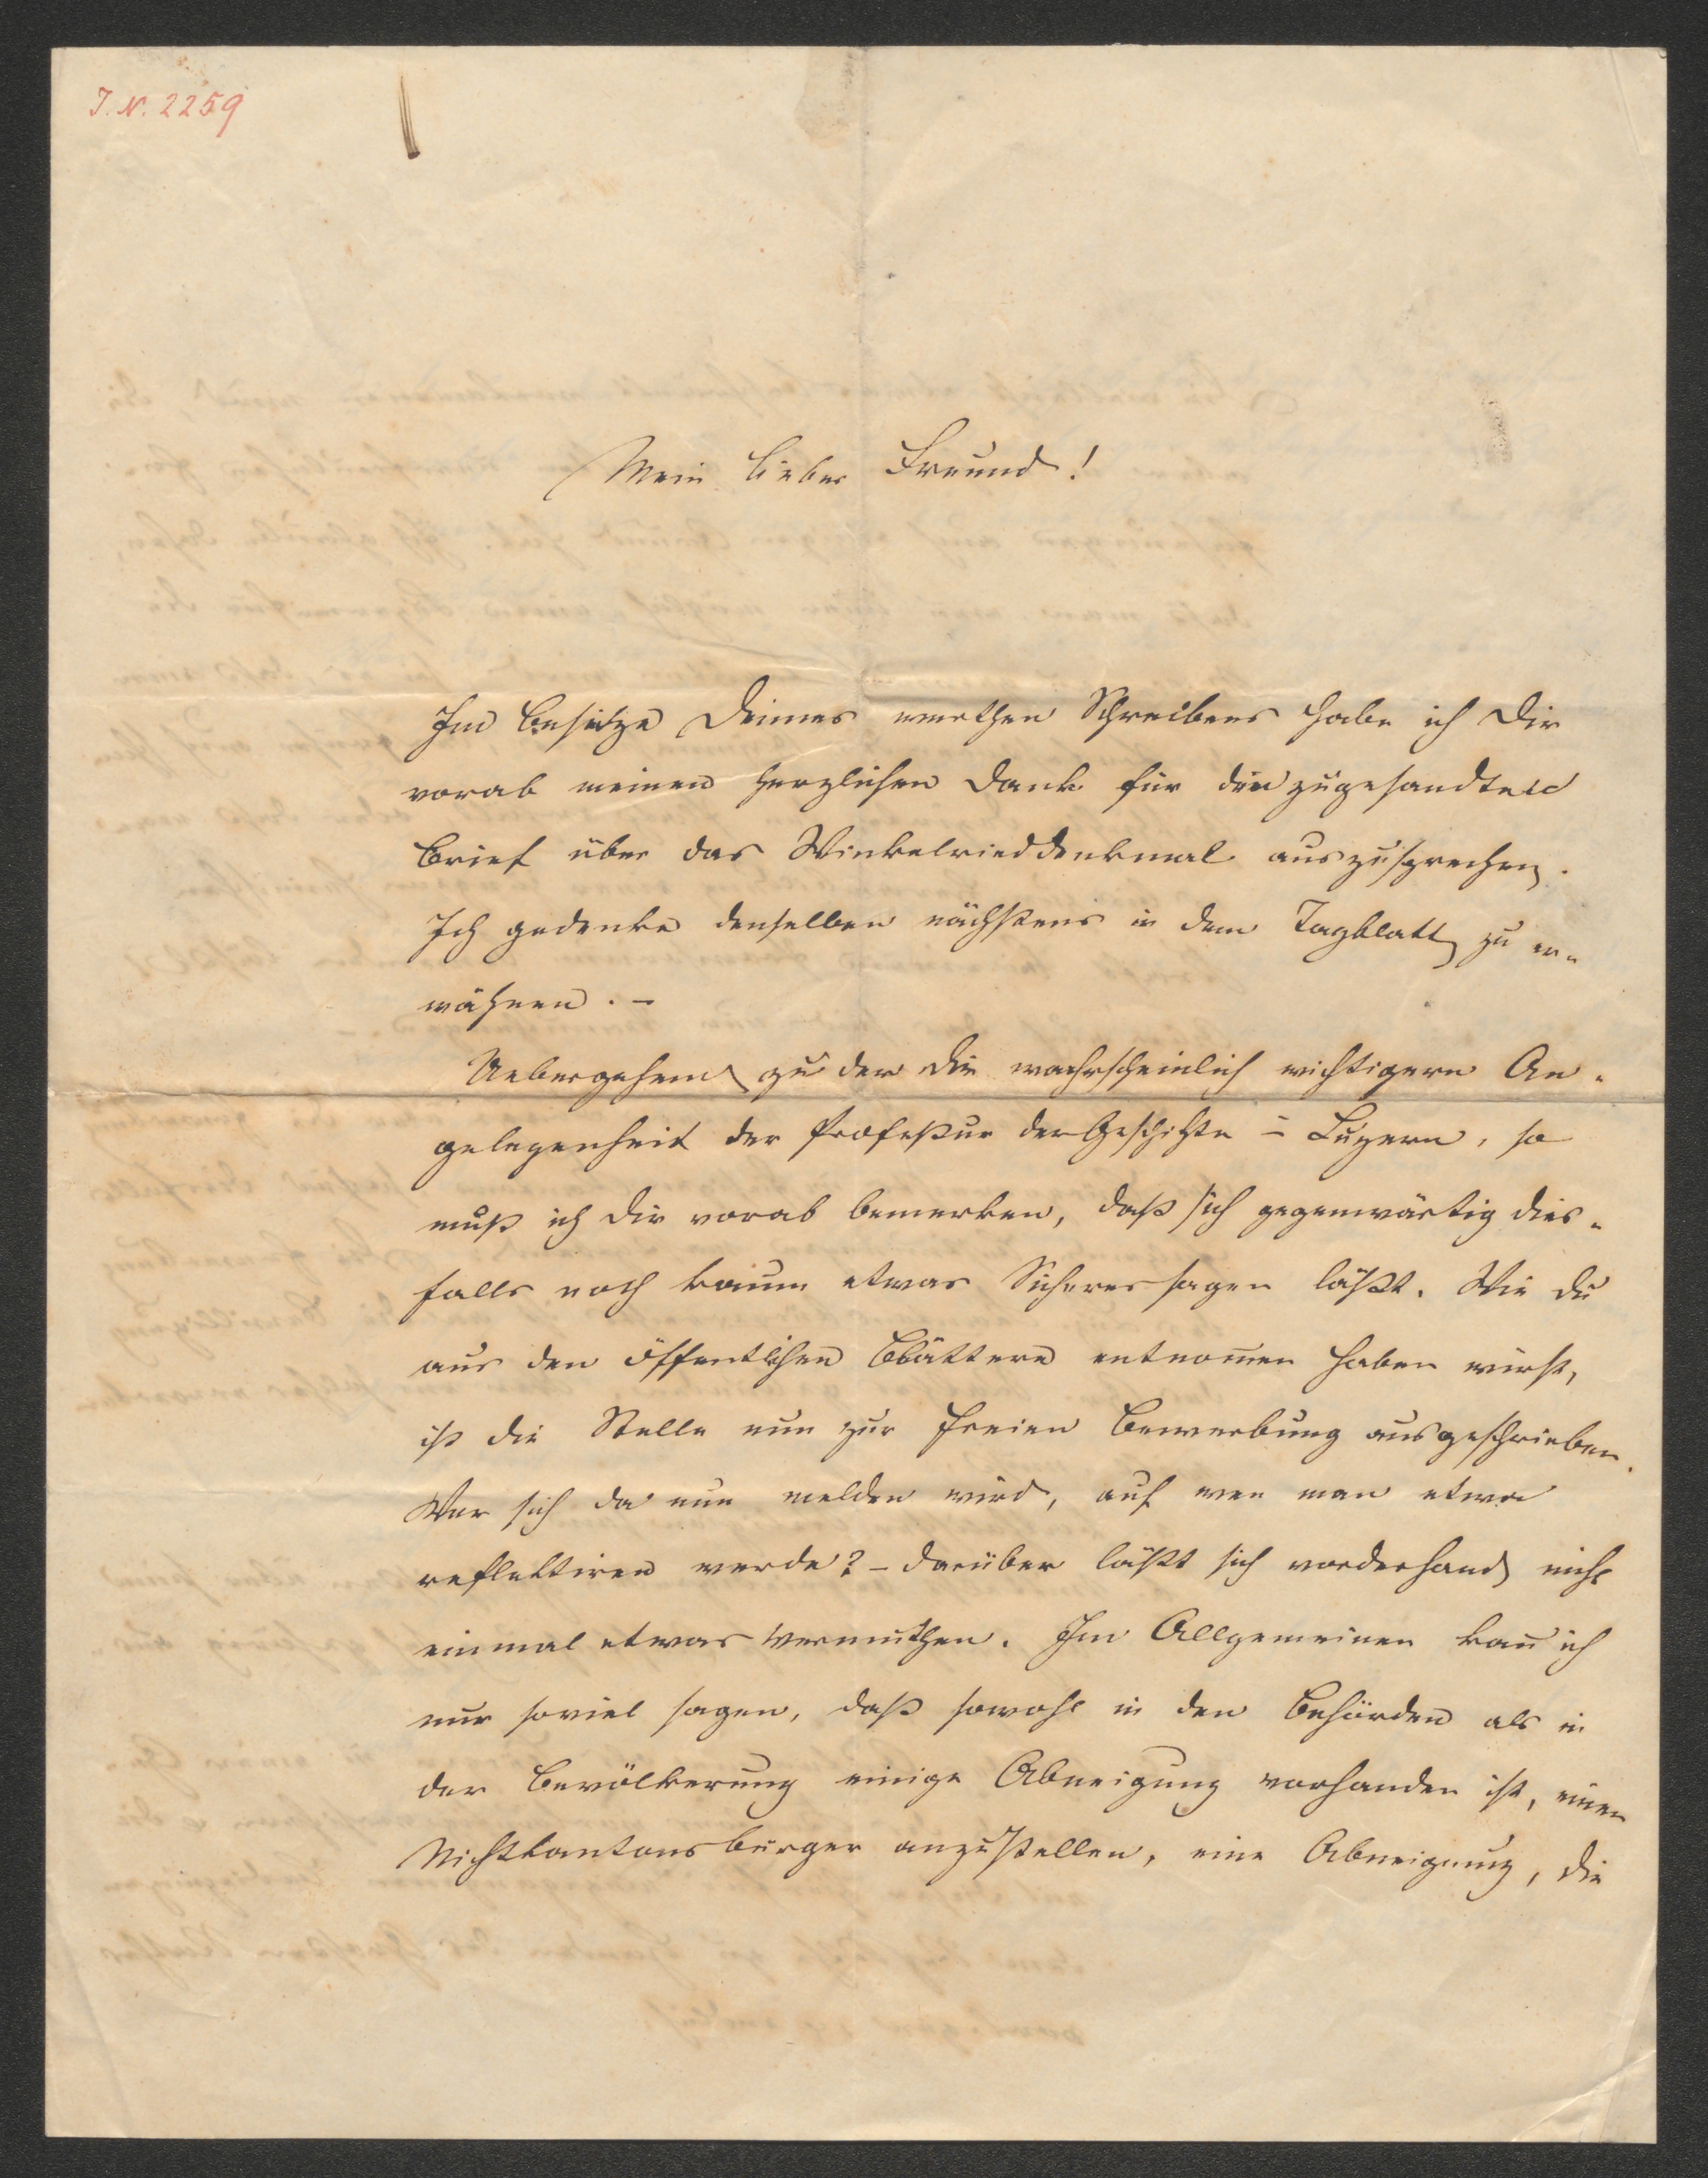 J. N. 2259
Mein lieber Freund!
Im Besitze Deines werthen Schreibens habe ich Dir
vorab meinen herzlichen Dank für den zugesandten
Brief über das Winkelrieddenkmal auszusprechen.
Ich gedenke denselben nächstens in dem Tagblatt zu er-
wähnen. -
Uebergehend zu der Dir wahrscheinlich wichtigern An-
gelegenheit der Profeßur der Geschichte in Luzern, so
muß ich Dir vorab bemerken, daß sich gegenwärtig dies-
falls noch kaum etwas Sicheres sagen läßt. Wie Du
aus den öffentlichen Blättern entnom̄en haben wirst,
ist die Stelle nun zur freien Bewerbung ausgeschrieben.
Wer sich da nun melden wird, auf wen man etwa
reflektiren werde? - darüber läßt sich vorderhand nicht
einmal etwas vermuthen. Im Allgemeinen kan̄ ich
nur soviel sagen, daß sowohl in den Behörden als in
der Bevölkerung einige Abneigung vorhanden ist, einen
Nichtkantonsbürger anzustellen, eine Abneigung, die